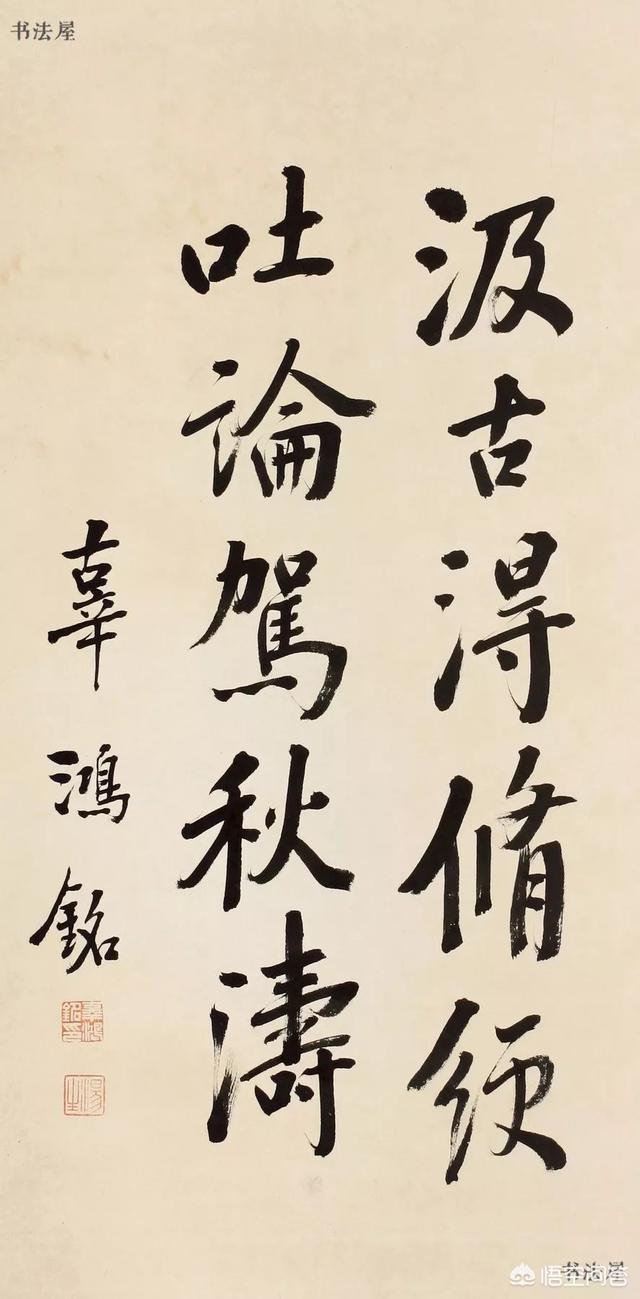 书法屋
汲古得脩绠
吐論駕秋濤
辜鴻銘
辜鴻銘印
湯生
书法屋
悟空问答